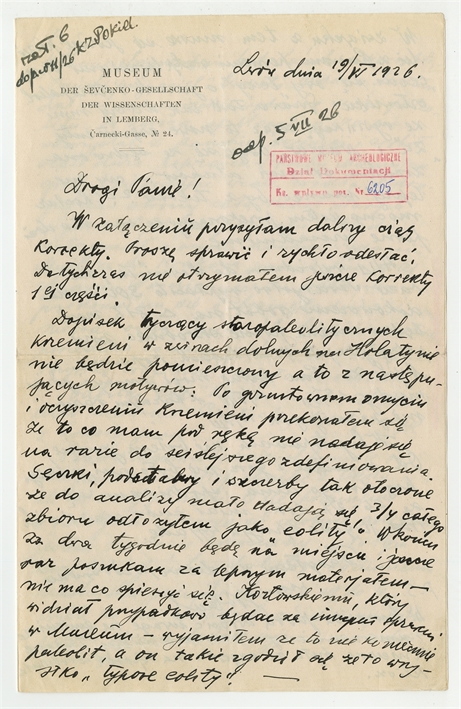 zał. 6
MUSEUM
DER ŠEVČENKO-GESELLSCHAFT
DER WISSENSCHAFTEN
IN LEMBERG,
Čarnecki-Gasse, № 24.
Lwów dnia 19/VI 1926.
odp. 5 VII 26
PAŃSTWOWE MUZEUM ARCHEOLOGICZNE
Dział Dokumentacji
Ks. wpływu poz. Nr 6205
Drogi Panie!
W załączeniu przysyłam dalszy ciąg
Korrekty. Proszę sprawić i rychło odesłać.
Dotychczas nie otrzymałem jeszcze Korrekty
1ej części.
Dopisek tyczący staropaleolitycznych
krzemieni w żwirach dolnych na Hołatynie
nie będzie pomieszczony a to z następu-
jących motywów: Po gruntownem omyciu
i oczyszczeniu krzemieni przekonałem się
że to co mam pod ręką nie nadaje się
na razie do ściślejszego zdefiniowania.
Sęczki, podstawy i szczerby tak otoczone
że do analizy mało nadają się! 3/4 całego
zbioru odłożyłem jako "eolity". W końcu
za dwa tygodnie będę na miejscu i jeszcze
raz poszukam za lepszym materjałem –
nie ma co spieszyć się. Kozłowskiemu, który
widział przypadkowo będąc za innemi sprawami
w Muzeum – wyjaśniłem że to nie koniecznie
paleolit, a on także zgodził się że to wszy-
stko "typowe eolity"! —